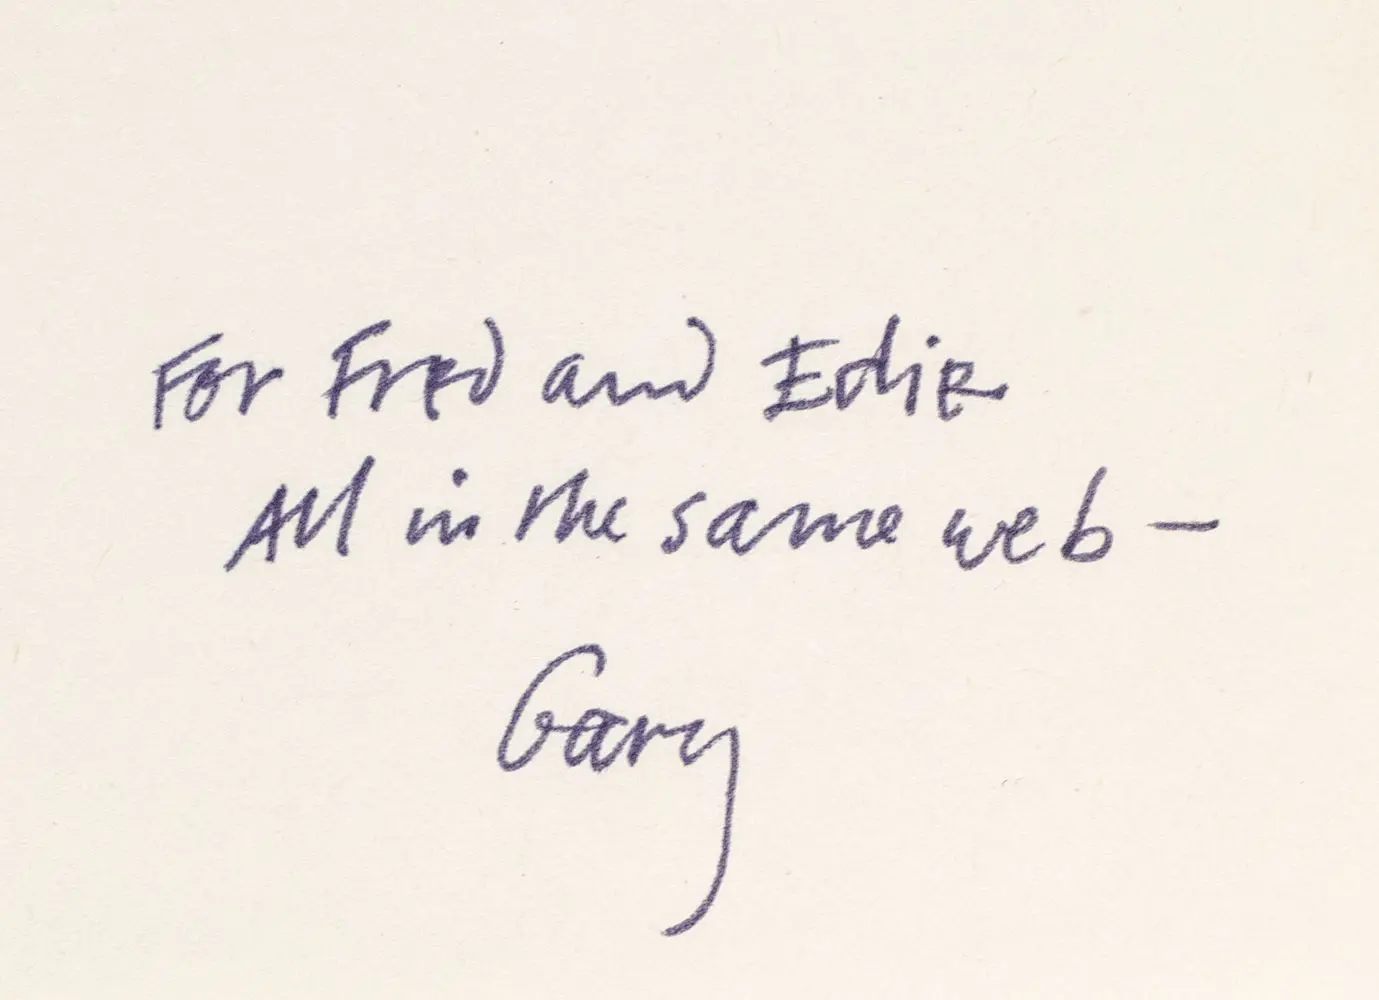 For Fred and Edie
All in the same web —
Gary